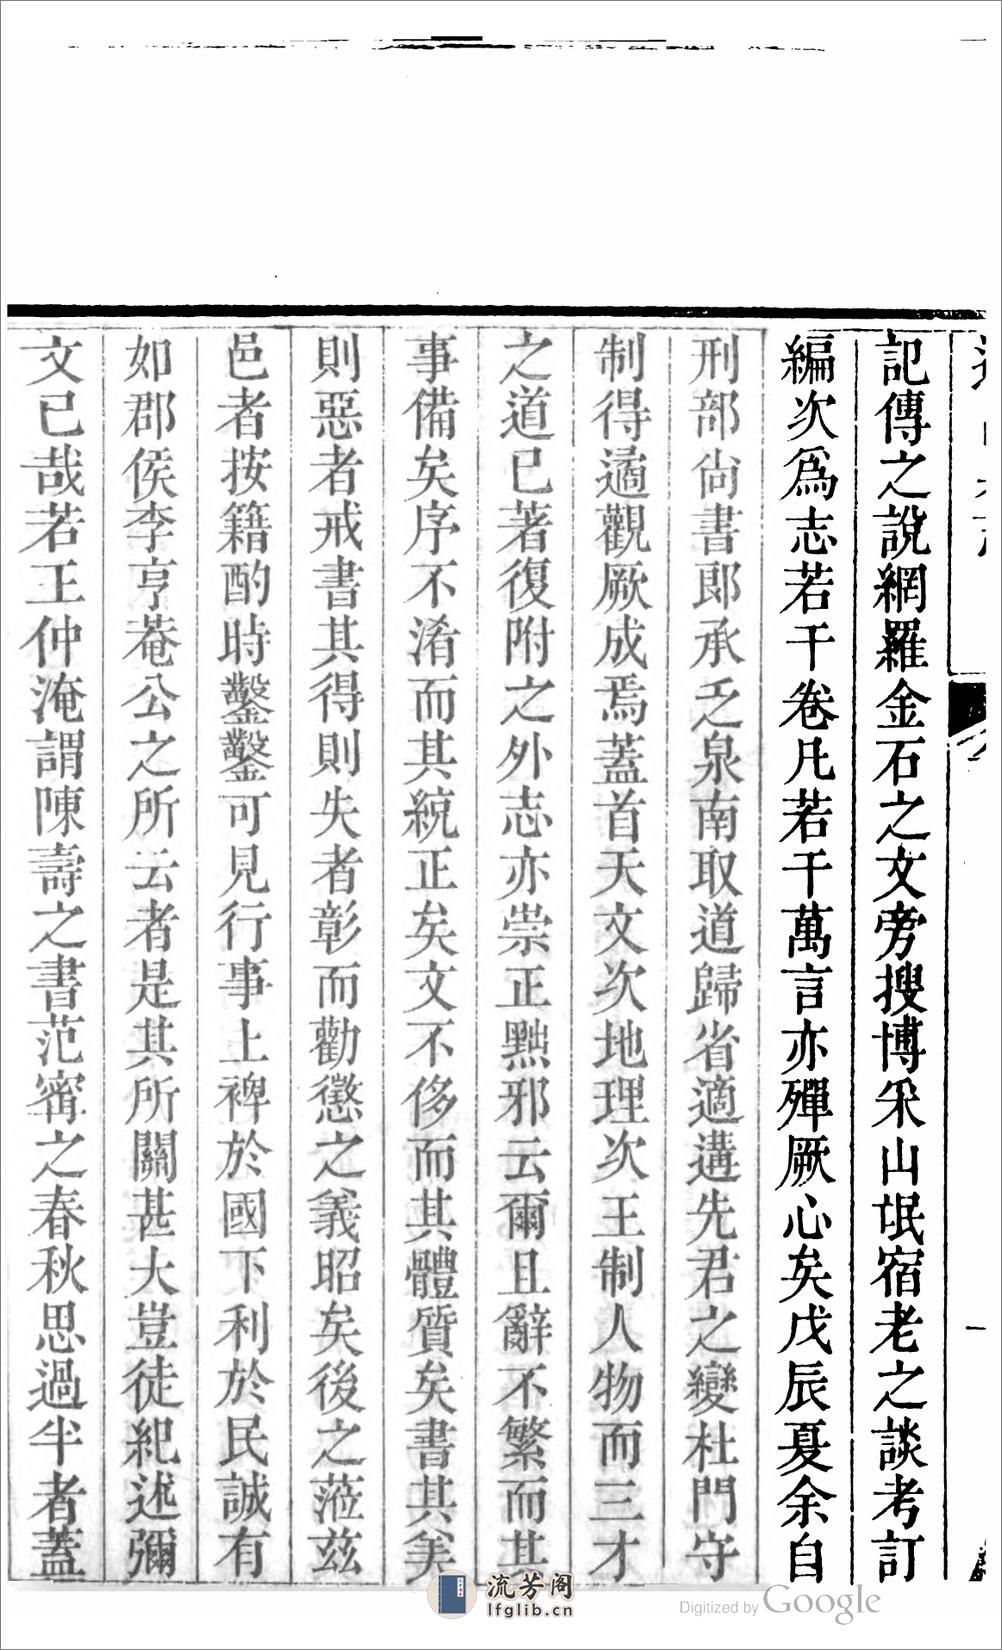 記傳之說網羅金石之文旁搜博采山氓宿老之談考訂
編次爲志若干卷凡若干萬言亦殫厥心矣戊辰夏余自
刑部尙書郞承乏泉南取道歸省適遘先君之變杜門守
制得遹觀厥成焉蓋首天文次地理次王制人物而三才
之道已著復附之外志亦崇正黜邪云爾且辭不繁而其
事備矣序不淆而其統正矣文不侈而其體質矣書其美
則惡者戒書其得則失者彰而勸懲之義昭矣後之蒞茲
邑者按籍酌時鑿鑿可見行事上裨於國下利於民誠有
如郡侯李亨菴公之所云者是其所關甚大豈徒紀述彌
文已哉若王仲淹謂陳壽之書范甯之春秋思過半者蓋
一
流芳阁
lfglib.cn
Digitized by Google